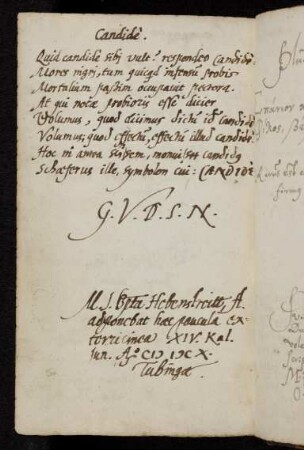 Candidè.
Quid candidè sibi vult? respondeo candidè
Mores nigri, tum quicqd infensũ probis
Mortalium passim occupavit pectora.
At qui notæ probioris esse dicier
Volumus, quod dicimus dictũ id candidè
Volumus; quod effectũ, effectũ illud candidè.
Hoc
Schæferus ille, symbolon cui: CANDIDÈ
G. V. D. S. N.
M. J. Bpta Hebenstreitt, A.
adponebat hæc paucula ex-
XIV. Kal.
Jun. Aº CIↃ IↃC X.
Tubingæ.